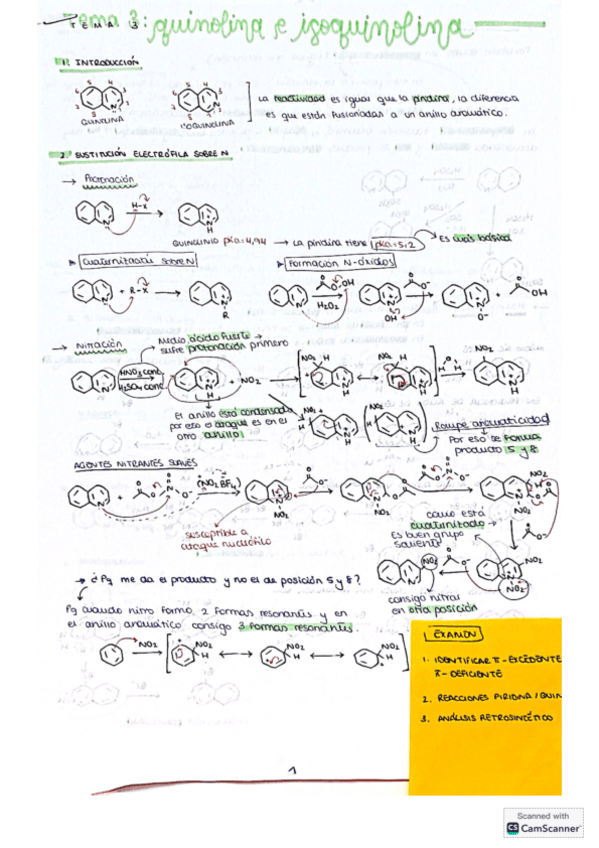 Tema 3: quinolina e isoquinolina
TEMA 3:
1. INTRODUCCIÓN
QUINOLINA
ISOQUINOLINA
La reactividad es igual que la piridina, la diferencia
es que están fusionadas a un anillo aromático.
2. SUSTITUCIÓN ELECTRÓFILA SOBRE N
→ Protonación
H-X
QUINOLINIO pKa=4,94 → La piridina tiene pKa=5,2
Es más básica
Cuaternización sobre N
Formación N-óxidos
+ R-X →
H2O2
→ Nitración
Medio ácido fuerte →
sufre protonación primero
HNO3 conc.
H2SO4 conc.
+ NO2
El anillo está condensado
por eso el ataque es en el
otro anillo
Rompe aromaticidad
Por eso se forma
producto 5 y 8
AGENTES NITRANTES SUAVES
(NO2BF4)
susceptible a
ataque nucleófilo
como está
cuaternizado →
Es buen grupo
saliente
consigo nitrar
en otra posición
→ ¿Pq me da el producto y no el de posición 5 y 8?
Pq cuando nitro formo 2 formas resonantes y en
el anillo aromático consigo 3 formas resonantes.
EXAMEN
1. IDENTIFICAR π-EXCEDENTE
π-DEFICIENTE
2. REACCIONES PIRIDINA/QUIN
3. ANÁLISIS RETROSINTÉTICO
1
Scanned with
CS CamScanner